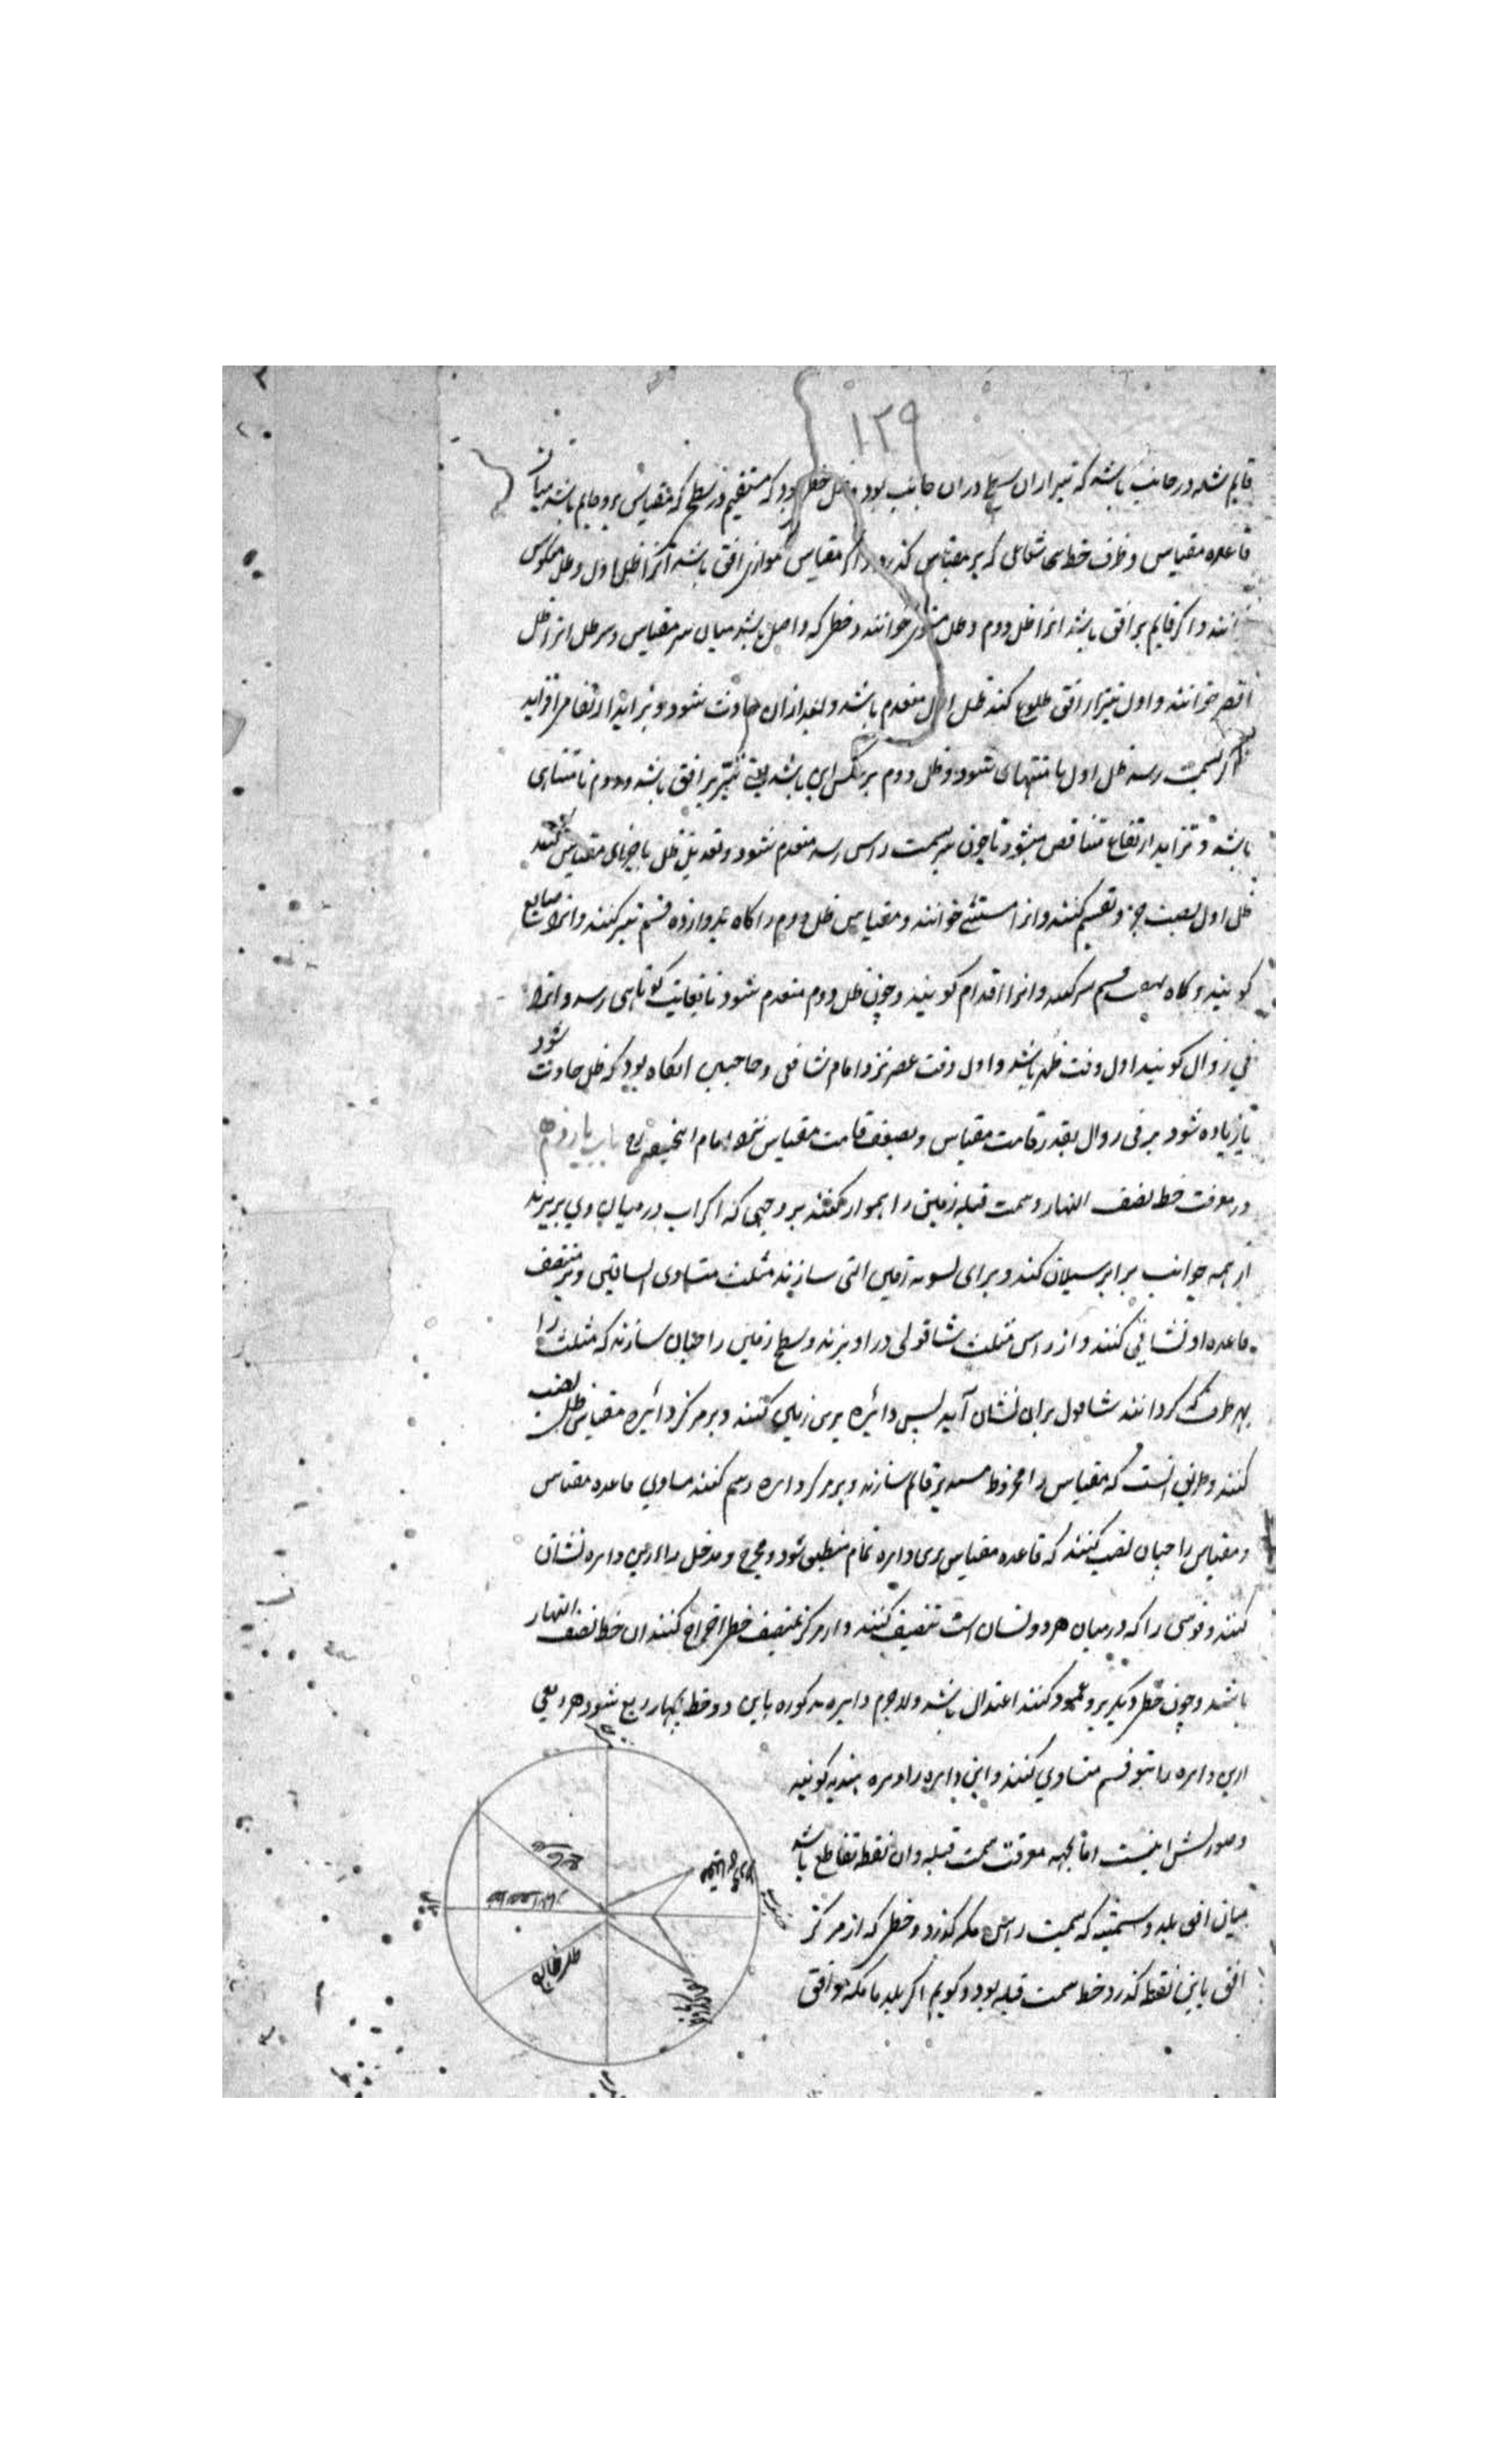 ۱۲۹
قایم شده در جانب باشد که نیر ازان سطح دران جانب بود و ظل خطی بود که مستقیم در سطح که مقیاس برو قایم باشد میان
قاعده مقیاس و طرف خط شعاعی که بر مقیاس کذرد و اکر مقیاس موازی افق باشد آنرا ظل اول و ظل معکوس
خوانند و اکر قایم بر افق باشد انرا ظل دوم و ظل مستوی خوانند و خطی که واصل باشد میان سر مقیاس و سر ظل انرا ظل
اقصر خوانند و اول نیر از افق طلوع کند ظل اول منعدم باشد و بعد ازان حادث شود و بتزاید ارتفاع می افزاید
بسمت رسد ظل اول نامتناهی شود و ظل دوم بر عکس این باشد یعنی نیر بر افق باشد دوم نامتناهی
باشد و تزاید ارتفاع متناقص میشود تا چون نیر بسمت راس رسد منعدم شود و تعدیل ظل باجزای مقیاس کنند
ظل اول بصت جزو تقسیم کنند و انرا ستینی خوانند و مقیاس ظل دوم را کاه بدوازده قسم نیز کنند و انرا اصابع
کویند و کاه بهفت قسم کنند و انرا اقدام کویند و چون ظل دوم منعدم شود تا بغایت کوتاهی رسد و انرا
فی زوال کویند اول وقت ظهر باشد و اول وقت عصر نزد امام شافعی و صاحبین انکاه بود که ظل حادث شود
یا زیاده شود بر فی زوال بقدر قامت مقیاس و بضعف قامت مقیاس نزد امام ابحنیفه رح باب یازدهم
در معرفت خط نصف النهار و سمت قبله زمین را هموار کنند بر وجهی که اکر اب در میان وی بریزند
از همه جوانب برابر سیلان کند و برای تسویه زمین التی سازند مثلث متساوی الساقین و بر منتصف
قاعده او نشانی کنند و از راس مثلث شاقولی در اویزند و سطح زمین را چنان سازند که مثلث را
بهر طرف که کردانند شاقول بران نشان آید پس دائره بر زمین کنند و بر مرکز دائره مقیاس ظل نصب
کنند و طریق انست که مقیاس را مخروط مستدیر قایم سازند و بر مرکز دایره رسم کنند مساوی قاعده مقیاس
و مقیاس را چنان نصب کنند که قاعده مقیاس برین دایره تمام منطبق شود و مخرج و مدخل دایره نشان
کنند و قوسی را که در میان هر دو نشان است تنصیف کنند و از مرکز بمنتصف خطی اخراج کنند ان خط نصف النهار
باشد و چون خطی دیکر برو عمود کنند اعتدال باشد و لاجرم دایره مذکوره باین دو خط بچهار ربع شود هر ربعی
ازین دایره را بنود قسم متساوی کنند و این دایره را دایره هندیه کویند
و صورتش اینست اما بجهه معرفت سمت قبله و ان نقطه تقاطع باشد
میان افق بلد و سمتیه که بسمت راس مکه کذرد و خطی که از مرکز
افق باین نقطه کذرد خط سمت قبله بود و کویم اکر بلد با مکه موافق